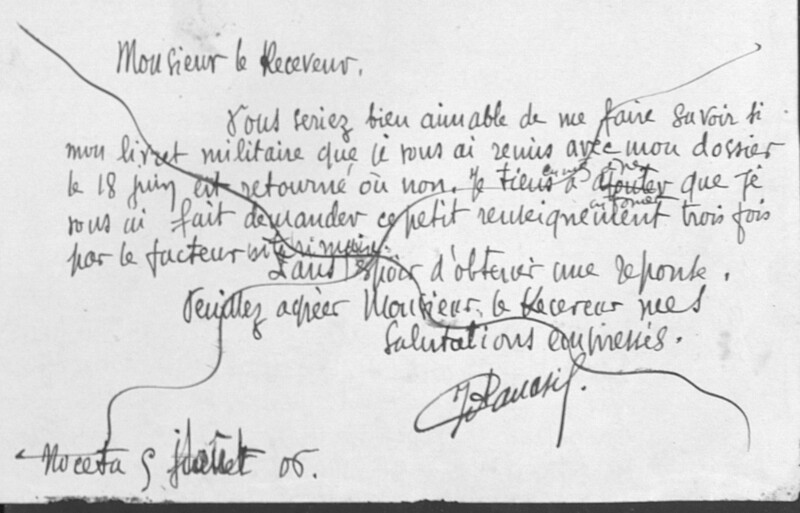 Monsieur le Receveur.
Vous seriez bien aimable de me faire savoir si
mon livret militaire que je vous ai remis avec mon dossier
le 18 juin est retourné où non. Je tiens à ajouter que je
vous ai fait demander ce petit renseignement trois fois
par le facteur
Dans l'espoir d'obtenir une reponse.
Veuillez agréer Monsieur le Receveur mes
salutations empressés.
Noceta 9 06.